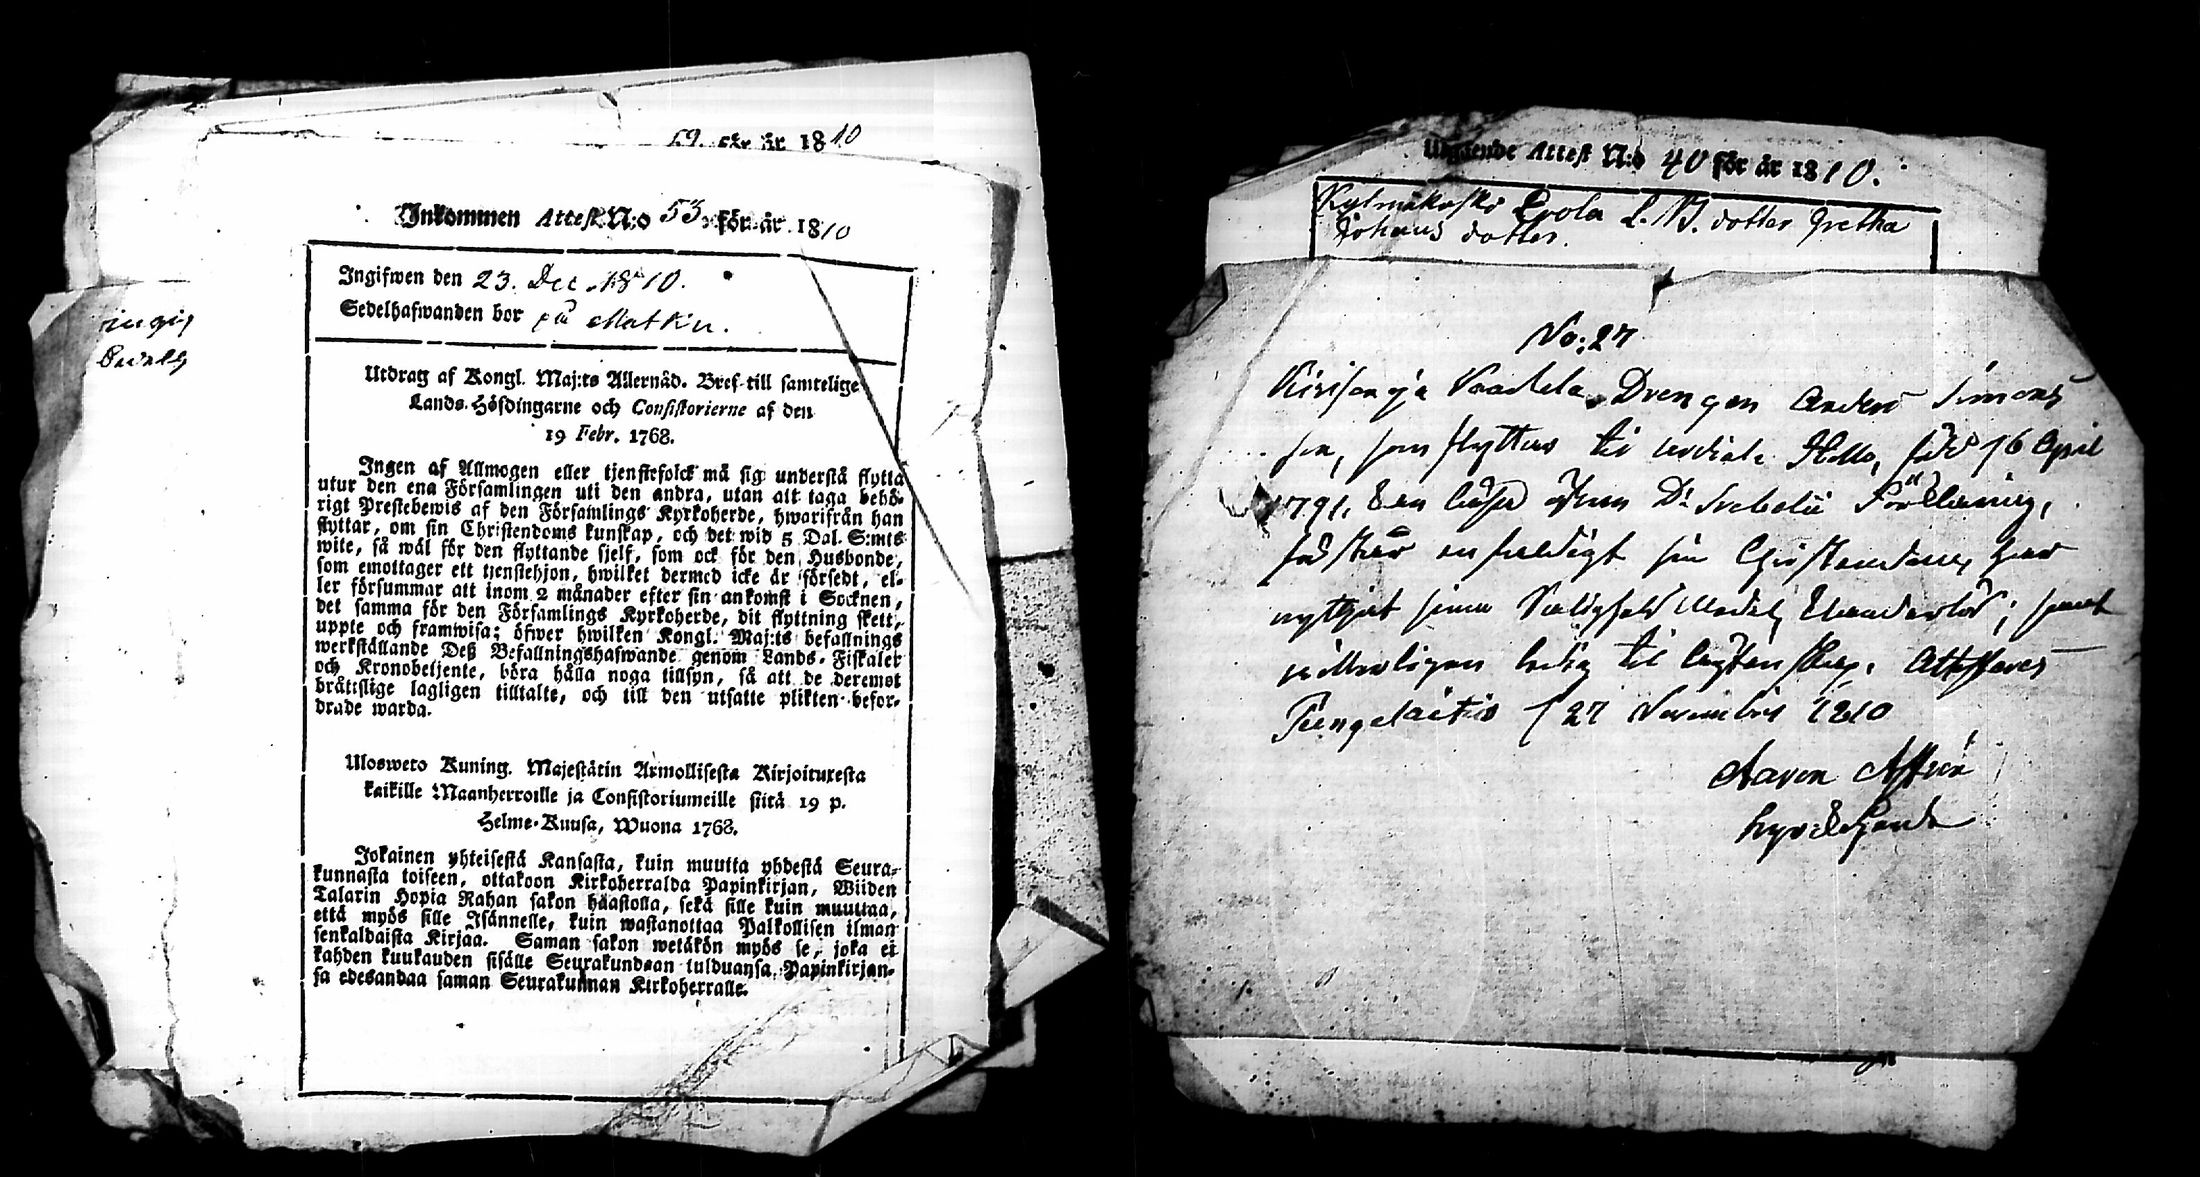 59. för år 1810
Inkommen Attest N:o 53. för år 1810
Ingifwen den 23. Dec. 1810.
Sedelhafwanden bor på Matku.
Utdrag af Kongl. Maj:ts Allernåd. Bref till samtelige
Lands-Höfdingarne och Consistorierne af den
19 Febr. 1768.
Ingen af Allmogen eller tjenstefolck må sig understå flytta
utur den ena Församlingen uti den andra, utan att taga behö-
rigt Prestebewis af den Församlings Kyrkoherde, hwarifrån han
flyttar, om sin Christendoms kunskap, och det wid 5 Dal. S:mts
wite, så wäl för den flyttande sjelf, som ock för den Husbonde,
som emottager ett tjenstehjon, hwilket dermed icke är försedt, el-
ler försummar att inom 2 månader efter sin ankomst i Socknen,
det samma för den Församlings Kyrkoherde, dit flyttning skett,
uppte och framwisa; öfwer hwilken Kongl. Maj:ts befallnings
werkställande Deß Befallningshafwande genom Lands-Fiskaler
och Kronobetjente, böra hålla noga tillsyn, så att de deremot
bråtislige lagligen tilltalte, och till den utsatte plikten befor-
drade warda.
Ulosweto Kuning. Majestätin Armollisesta Kirjoituxesta
kaikille Maanherroille ja Consistoriumeille siitä 19 p.
Helme-Kuusa, Wuona 1768.
Jokainen yhteisestä Kansasta, kuin muutta yhdestä Seura-
kunnasta toiseen, ottakoon Kirkoherralda Papinkirjan, Wiiden
Talarin Hopia Rahan sakon haastolla, sekä sille kuin muuttaa,
että myös sille Isännelle, kuin wastanottaa Palkollisen ilman
senkaldaista Kirjaa. Saman sakon wetäkön myös se, joka ei
kahden kuukauden sisälle Seurakundaan tulduansa, Papinkirjan-
sa edesandaa saman Seurakunnan Kirkoherralle.
Utgående Attest N:o 40 för år 1810.
Kylmäkoski Erola L. M. dotter Gretha
Johans dotter.
No: 27
Drengen Anders Simons
son, som flyttar til Stelle, född 16 April
1791, Läser utom D: Svebelii Förklaring,
förstår enfaldigt sin Christendom, har
nyttjat sina Salighets Medel, samt
til ägtenskap. Attesteras
Pungelaitio d 27 Novembris 1810
Aaron